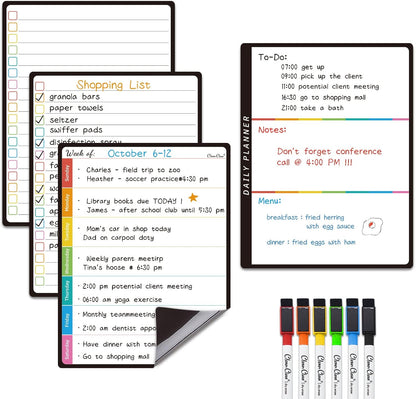 Shopping List
granola bars
paper towels
seltzer
swiffer pads
disinfection spray
Week of: October 6-12
Sunday
· Charles - field trip to zoo
· Heather - soccer practice#4:30 pm
Monday
· Library books due TODAY !
· James - after school club until 5:30 pm
Tuesday
Mom's car in shop today
Dad on carpool doty
Wednesday
· Weekly parent meetirp
Tina's house # 6:30pm
Thursday
· 2:00 pm potential client meeting
· 06:00 am yoga exercise
Friday
· Monthly teammeeting
· 2:00 am dentist appo
Saturday
· Have dinner with tom
· Go to shopping mall
DAILY PLANNER
To-Do:
07:00 get up
09:00 pick up the client
11:00 potential client meeting
16:30 go to shopping mall
21:00 take a bath
Notes:
Don't forget conference
call @ 4:00 PM !!!
Menu:
breakfast : fried herring
with egg sauce
dinner : fried eggs with ham